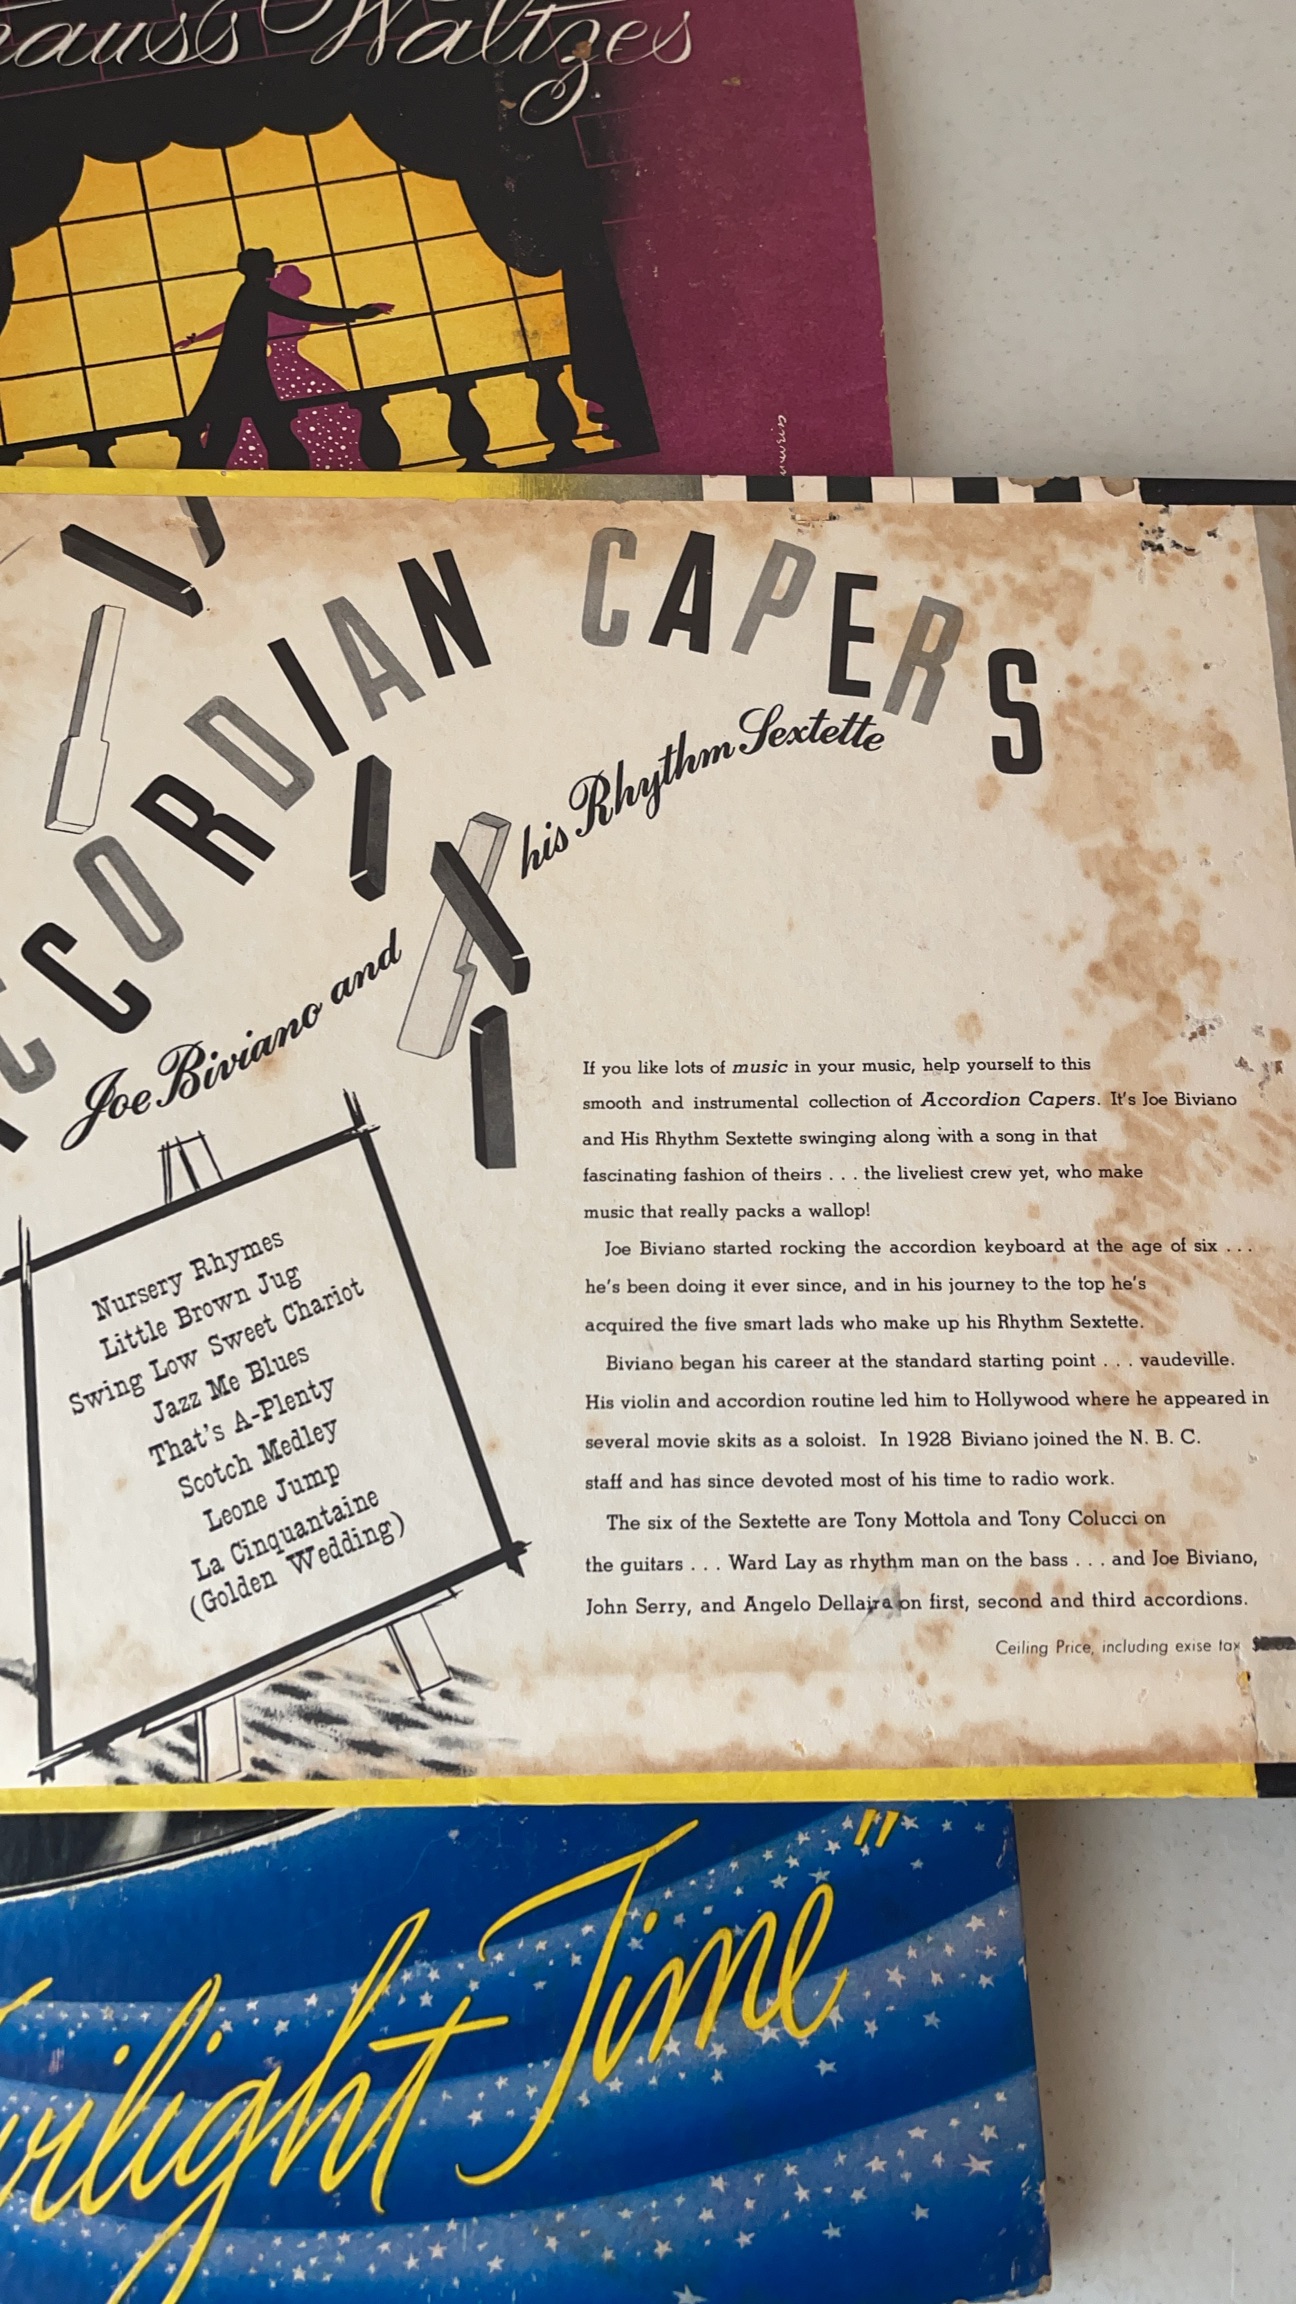 Waltzes
CAPERS
Joe Biviano and his Rhythm Sextette
Nursery Rhymes
Little Brown Jug
Swing Low Sweet Chariot
Jazz Me Blues
That's A-Plenty
Scotch Medley
Leone Jump
La Cinquantaine
(Golden Wedding)
If you like lots of music in your music, help yourself to this
smooth and instrumental collection of Accordion Capers. It's Joe Biviano
and His Rhythm Sextette swinging along with a song in that
fascinating fashion of theirs . . . the liveliest crew yet, who make
music that really packs a wallop!
Joe Biviano started rocking the accordion keyboard at the age of six . . .
he's been doing it ever since, and in his journey to the top he's
acquired the five smart lads who make up his Rhythm Sextette.
Biviano began his career at the standard starting point . . . vaudeville.
His violin and accordion routine led him to Hollywood where he appeared in
several movie skits as a soloist. In 1928 Biviano joined the N. B. C.
staff and has since devoted most of his time to radio work.
The six of the Sextette are Tony Mottola and Tony Colucci on
the guitars . . . Ward Lay as rhythm man on the bass . . . and Joe Biviano,
John Serry, and Angelo Dellaira on first, second and third accordions.
Ceiling Price, including exise tax
Time"